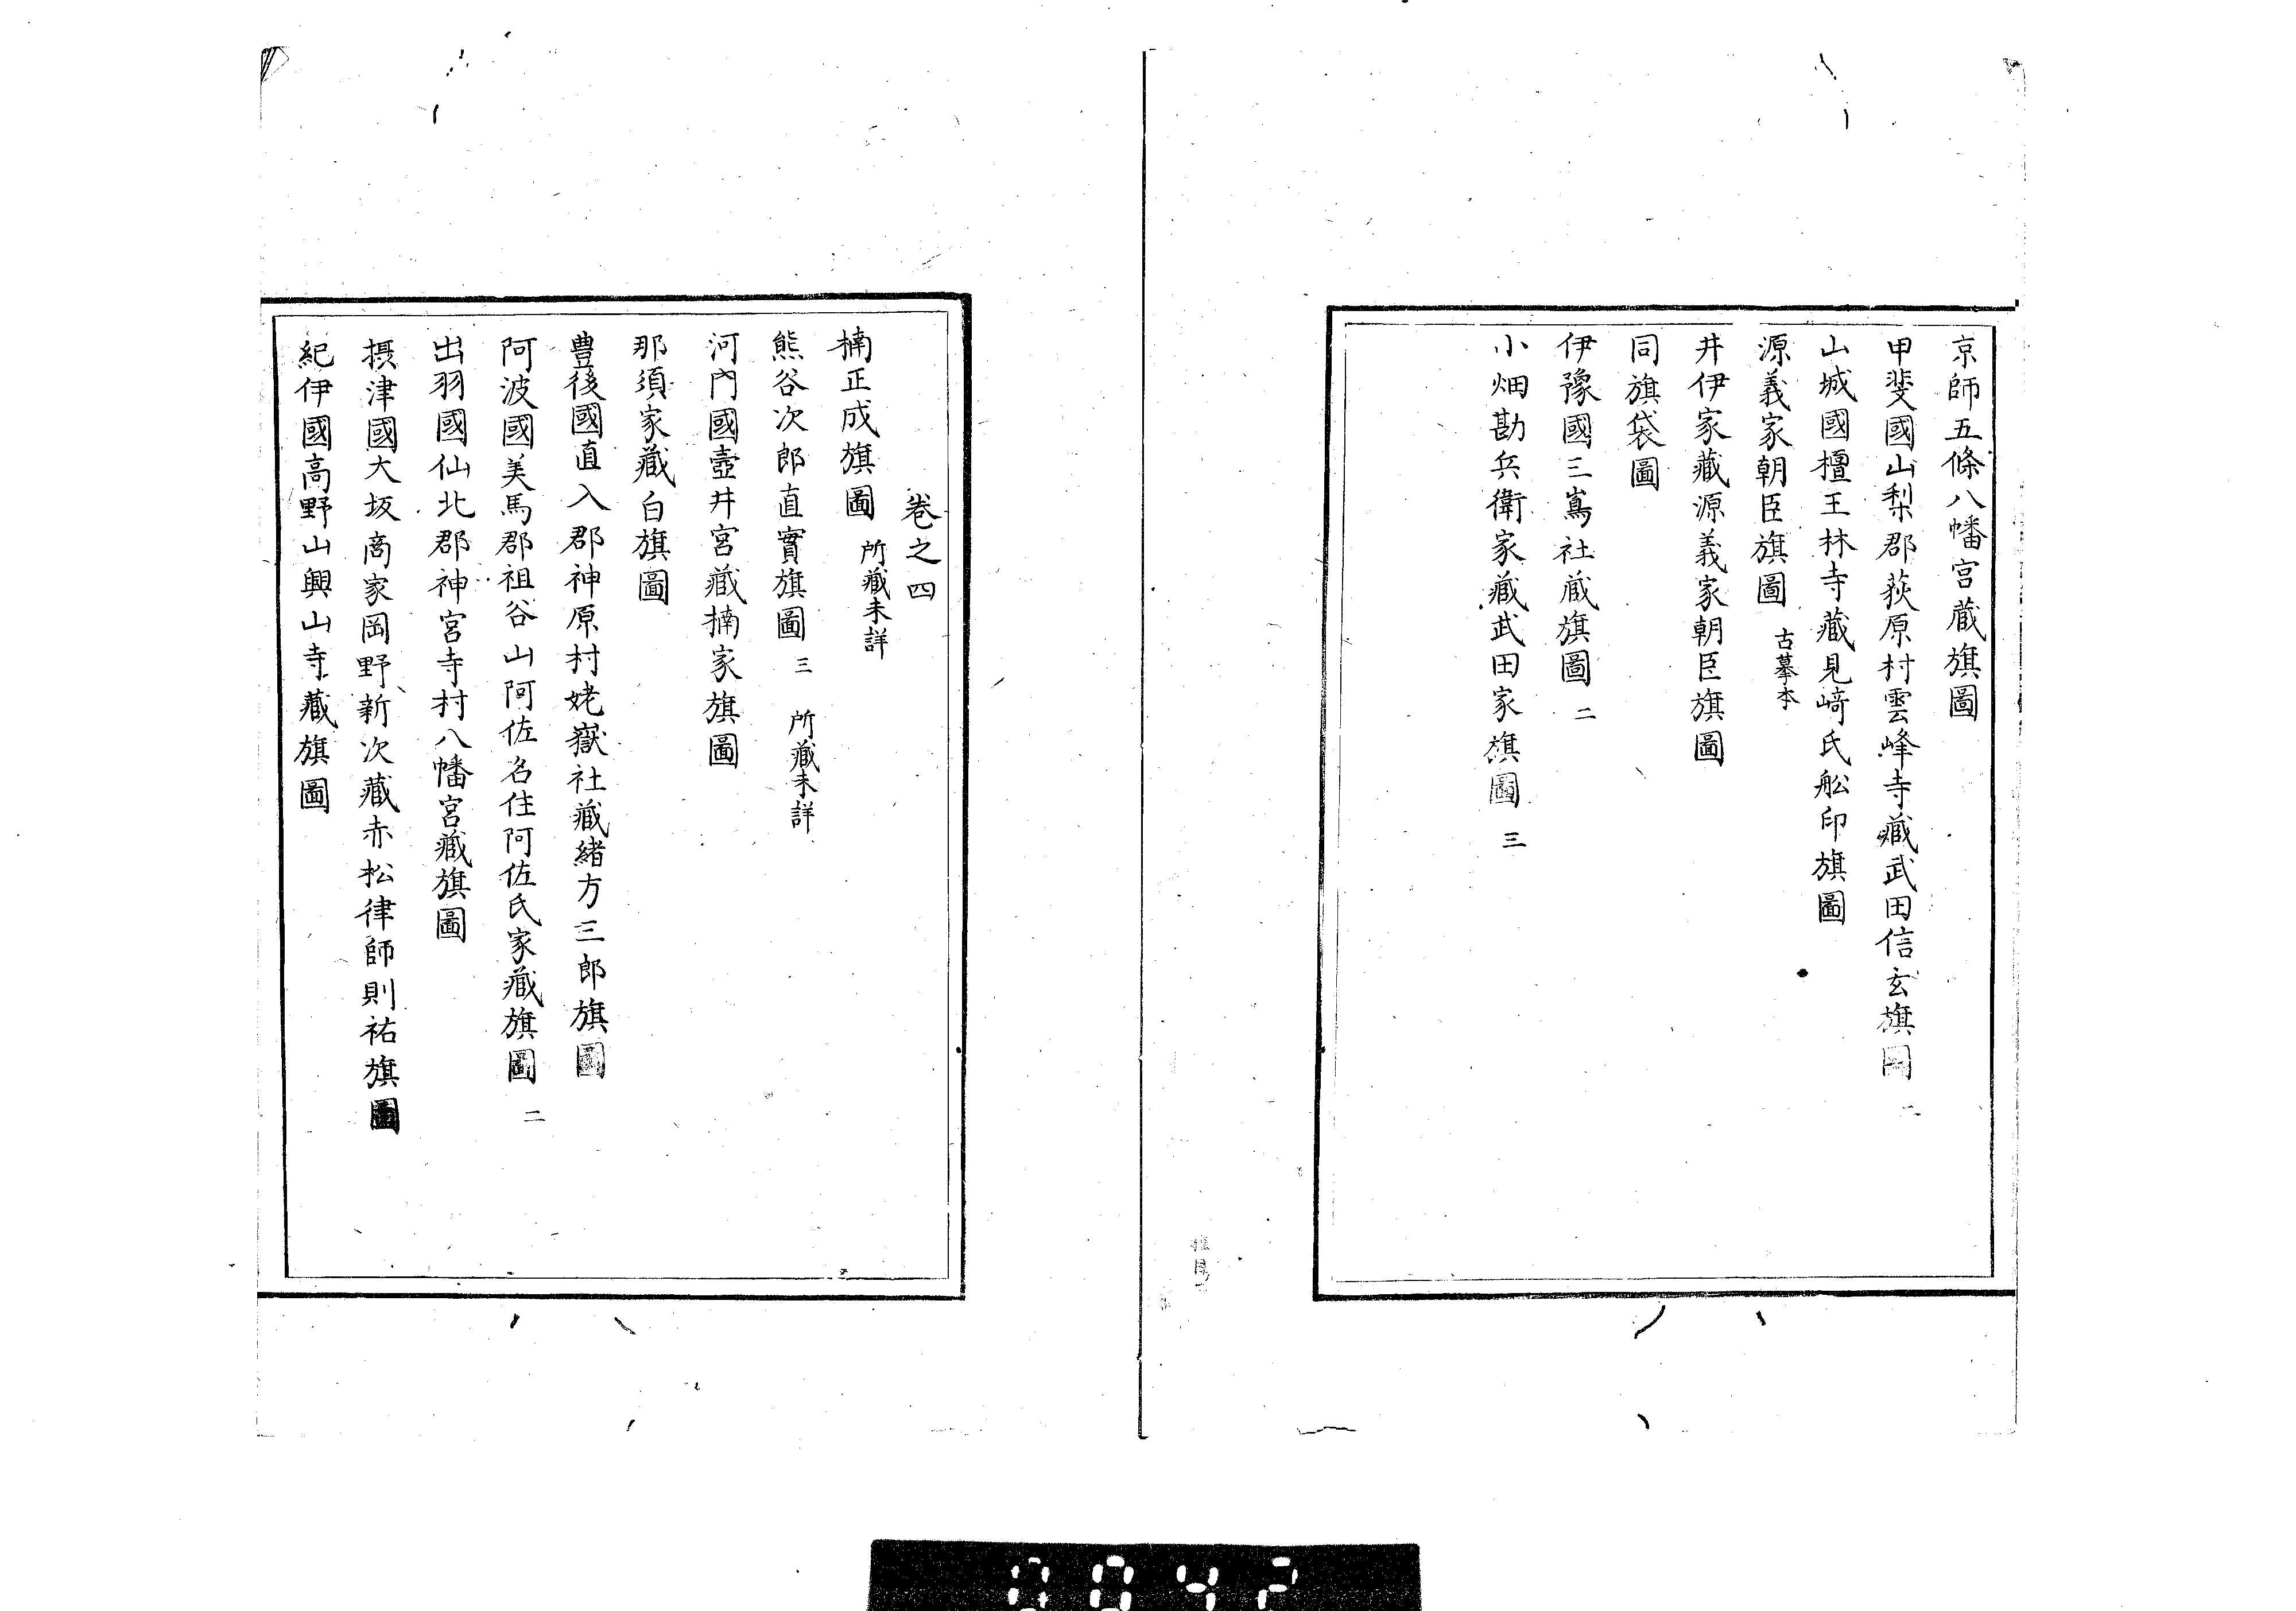 京師五條八幡宮蔵旗圖
甲斐國山梨郡萩原村雲峰寺蔵武田信玄旗圖 二
山城國檀王林寺蔵見﨑氏舩印旗圖
源義家朝臣旗圖 古摹本
井伊家蔵源義家朝臣旗圖
同旗袋圖
伊豫國三嶌社蔵旗圖 二
小畑勘兵衛家蔵武田家旗圖 三
卷之四
楠正成旗圖 所蔵未詳
熊谷次郎直實旗圖 三 所蔵未詳
河內國壺井宮蔵楠家旗圖
那須家蔵白旗圖
豊後國直入郡神原村姥嶽社蔵緒方三郎旗圖
阿波國美馬郡祖谷山阿佐名住阿佐氏家蔵旗圖 二
出羽國仙北郡神宮寺村八幡宮蔵旗圖
摂津國大坂商家岡野新次蔵赤松律師則祐旗圖
紀伊國高野山興山寺蔵旗圖